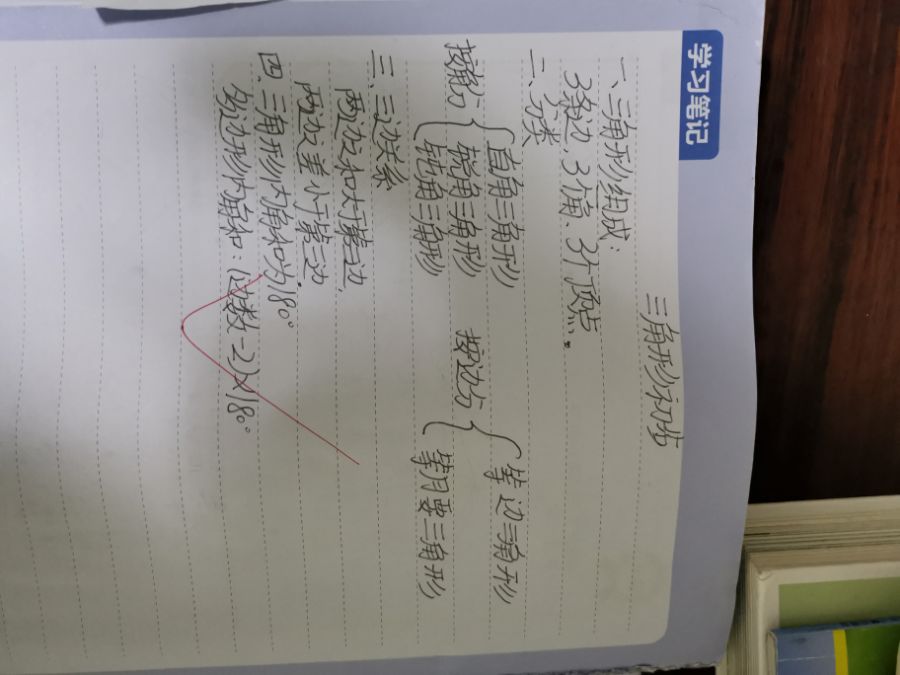 学习笔记
三角形初步
一、三角形组成：
3条边，3个角、3个顶点。
二、分类
按角分 { 直角三角形 锐角三角形 钝角三角形
按边分 { 等边三角形 等腰三角形
三、三边关系
两边之和大于第三边，
两边之差小于第三边.
四、三角形内角和为180°
多边形内角和：(边数-2)×180°